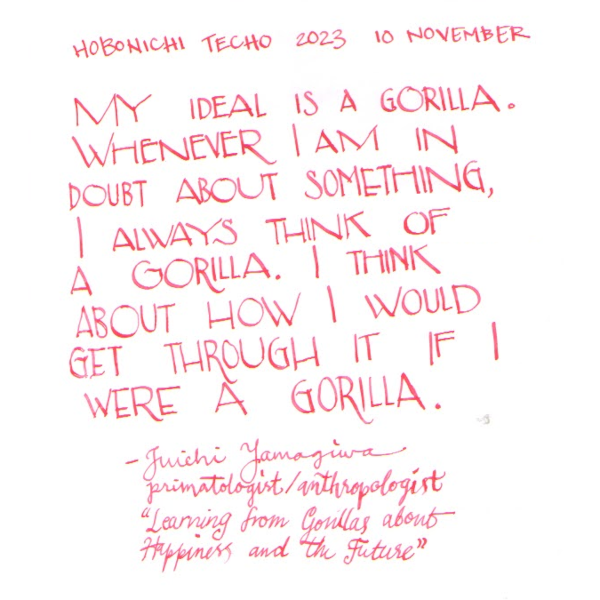 HOBONICHI TECHO 2023 10 NOVEMBER
MY IDEAL IS A GORILLA.
WHENEVER I AM IN
DOUBT ABOUT SOMETHING,
I ALWAYS THINK OF
A GORILLA. I THINK
ABOUT HOW I WOULD
GET THROUGH IT IF I
WERE A GORILLA.
- Juichi Yamagiwa
primatologist/anthropologist
"Learning from Gorillas about
Happiness and the Future"